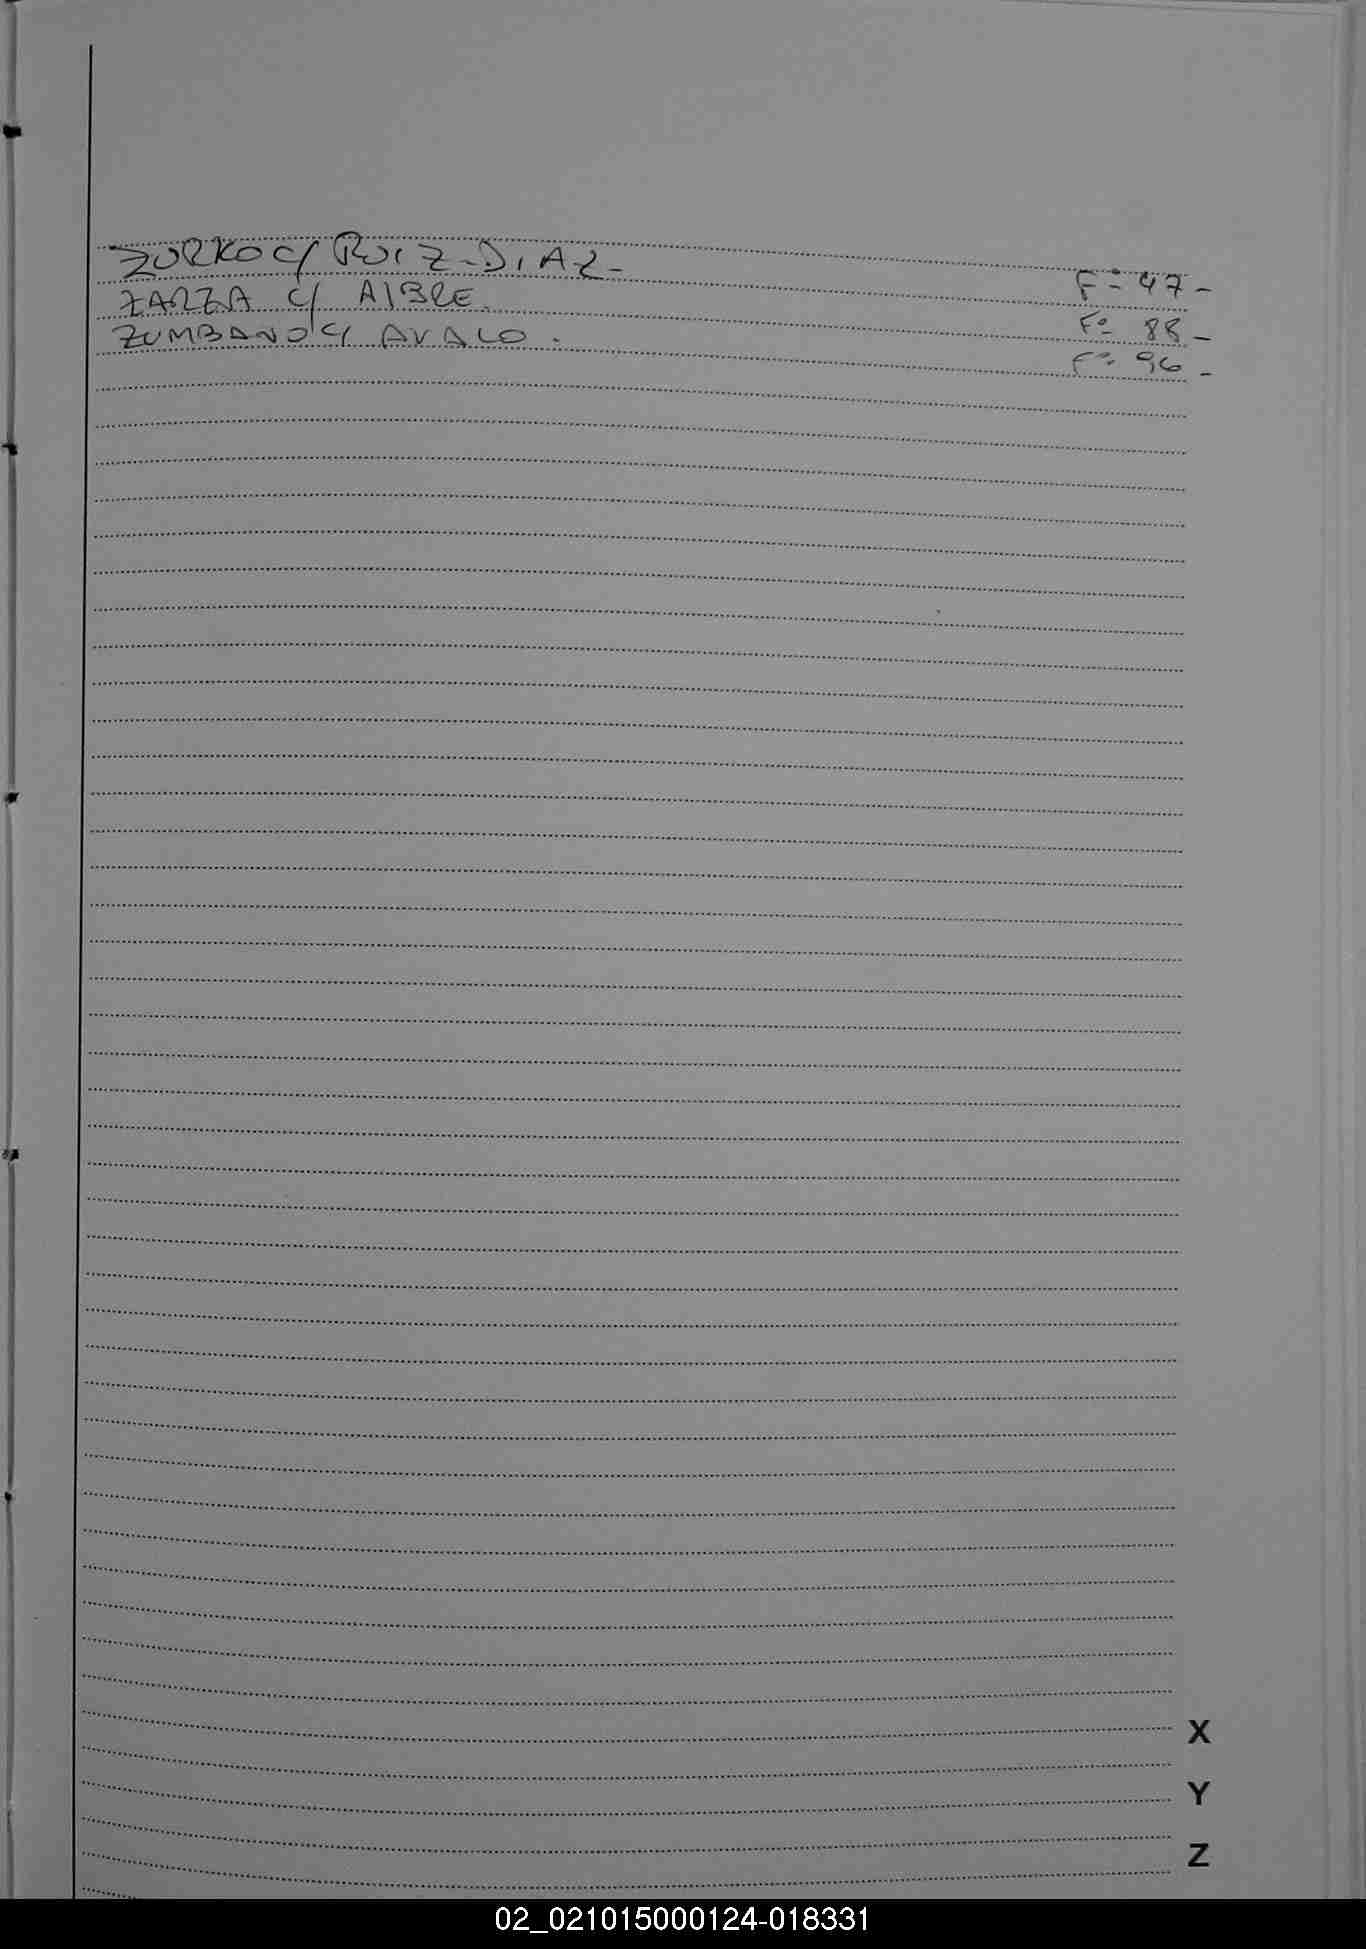 ZURKO C/ RUIZ-DIAZ- F° 47-
ZARZA C/ AIBRE. F° 88-
ZUMBANO C/ AVALO. F° 96-
X
Y
Z
02_021015000124-018331